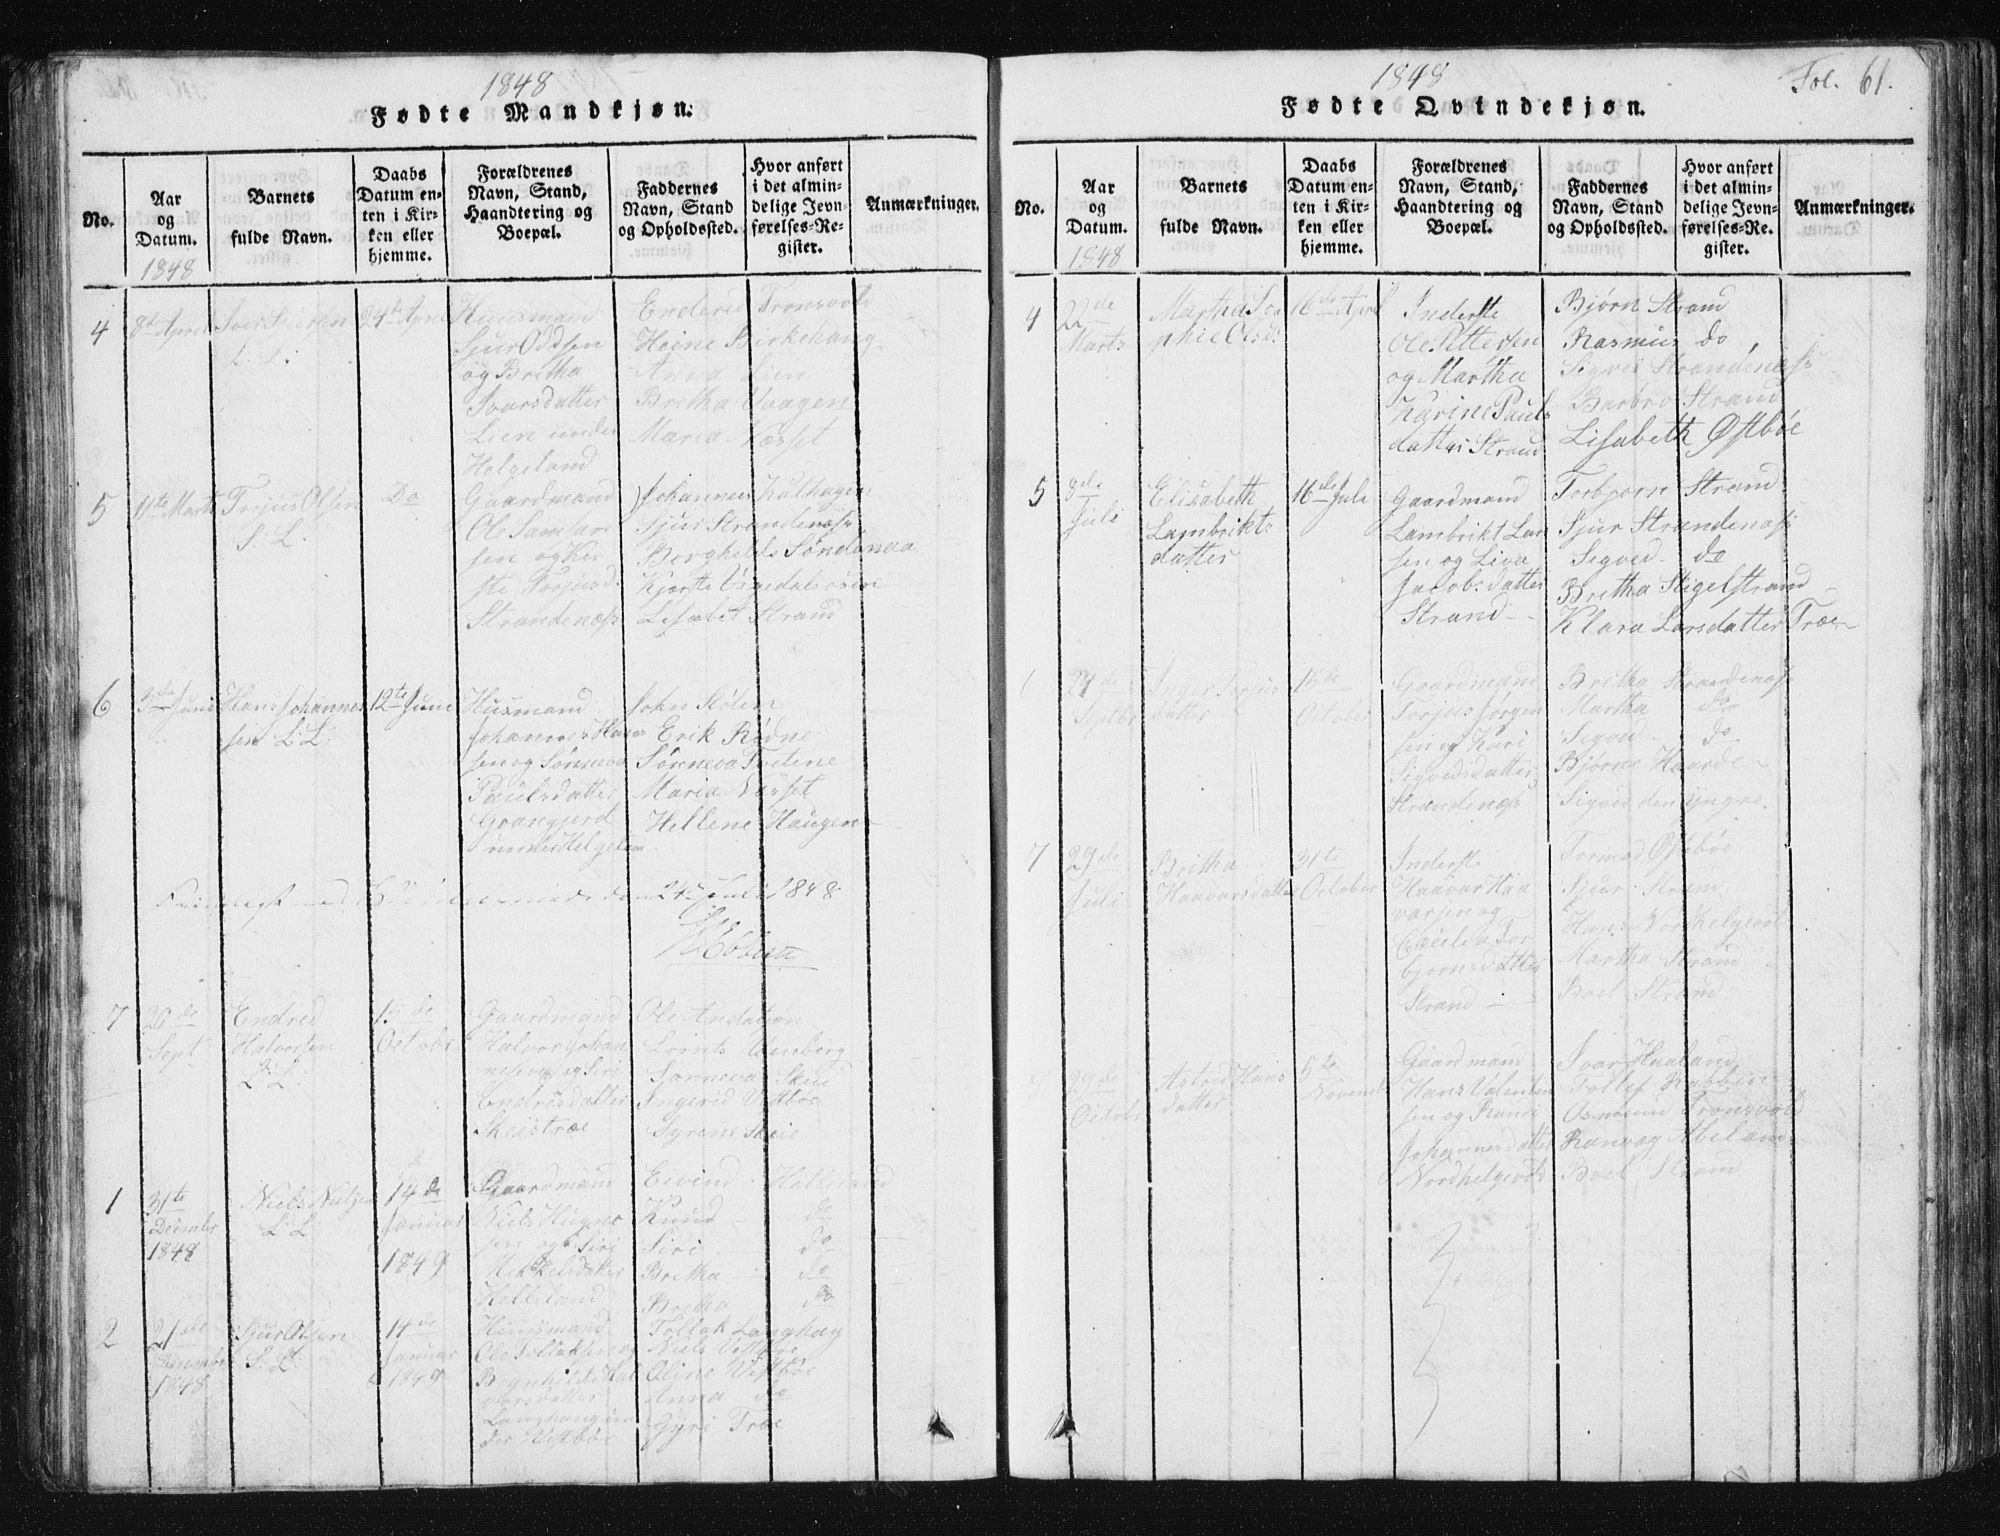 1848
Fødte Mandkjøn.
No.
Aar
og
Datum.
1848
Barnets
fulde Navn.
Daabs
Datum en-
ten i Kir-
ken eller
hjemme.
Forældrenes
Navn, Stand,
Haandtering og
Boepæl.
Faddernes
Navn, Stand
og Opholdssted.
Hvor anført
i det almin-
delige Jevn-
førelses-Re-
gister.
Anmærkninger.
4
8de April
Iver Sjursen
L. L.
24de April
Huusmand
Sjur Oddsen
og Britha
Ivarsdatter
Lien under
Helgeland
Enderid Tronsvold
Heine Birkehaug
Anna Lien
Britha Vaagen
Maria Næsset
5
11te Marts
Torjus Olsen
S. L.
Do
Gaardmand
Ole Samson
sen og Ker
sti Torjusd.
Strandenæss
Johannes Kalhagen
Sjur Strandenæss
Borghild Søndenaa
Kjersti
Lisabet Strand
6
3de Juni
Hans Johannes
sen L. L.
12te Juni
Husmand
Johannes Hans
sen og Sønneva
Paulsdatter
Graangjerd
under Helgeland
John Stølen
Erik Rødne
Sønneva Tvetene
Maria Næsset
Hellene Haugen
24de Juli 1848
7
26de
Sept
Endred
Halvorsen
L. L.
15de
Octobr
Gaardmand
Halvor Johan
nesen og Siri
Endrisdatter
Skeistræ
Ole Andatjøn
Lornts Høenberg
Sønneva Skeie
Ingerid Vestbøe
Syrene Skeie
1
31te
Decembr
1848
Niels Nielsen
L. L.
14de
Januar
1849
Gaardmand
Niels
sen og Siri
Mikkelsdatter
Helleland
Eivind Helleland
Knud do
Siri do
Britha do
Britha do
2
21de
Decembr
1848
Sjur Olsen
S. L.
14de
Januar
1849
Huusmand
Ole Tollaksen og
Brynhilde Hal
vorsdatter
Langhaug un
der Vestbøe
Tollak Langhag
Niels Vestbøe
Oline Vestbøe
Anna do
Gyri Træe
1848
Fol. 61.
Fødte Qvindekjøn.
No.
Aar
og
Datum.
1848
Barnets
fulde Navn.
Daabs
Datum en-
ten i Kir-
ken eller
hjemme.
Forældrenes
Navn, Stand,
Haandtering og
Boepæl.
Faddernes
Navn, Stand
og Opholdssted.
Hvor anført
i det almin-
delige Jevn-
førelses-Re-
gister.
Anmærkninger.
4
22de
Marts
Martha So
phie Olsd.
16de April
Inderste
Ole Pettersen
og Martha
Karine Pauls
datter Strand
Bjørn Strand
Rasmus do
Sigvei Strandenæss
Barbro Strand
Lisabeth Østbøe
5
8de
Juli
Elisabeth
Lambrikts
datter
16de Juli
Gaardmand
Lambrikt Lar
sen og Liva
Jacobsdatter
Strand
Torbjørn Strand
Sjur Strandenæss
Sigved do
Britha Stigelstrand
Klara Larsdatter Træe
6
24de
Septbr
Inger Torjus
datter
15de
October
Gaardmand
Torjus Jørgen
sen og Kari
Sigvedsdatter
Strandenæss
Britha Strandenæss
Martha do
Sigved do
Bjørne Haarde
Sigved den yngre.
7
29de
Juli
Britha
Haavarsdatter
31te
October
Inderste
Haavar Haa
varsen og
Cecilia Tor
bjørnsdatter
Strand
Tormod Østbøe
Sjur Strand
Hans Nordhelgevold
Martha Strand
Boel Strand
8
29de
Octobr
Astrid Hans
datter
5te
Novembr
Gaardmand
Hans Valentin
sen og Randi
Johannesdatter
Nordhelgevold
Ivar Haaland
Tollef Rabbin
Osmund Tronsvold
Ranvæg Abeland
Boel Strand